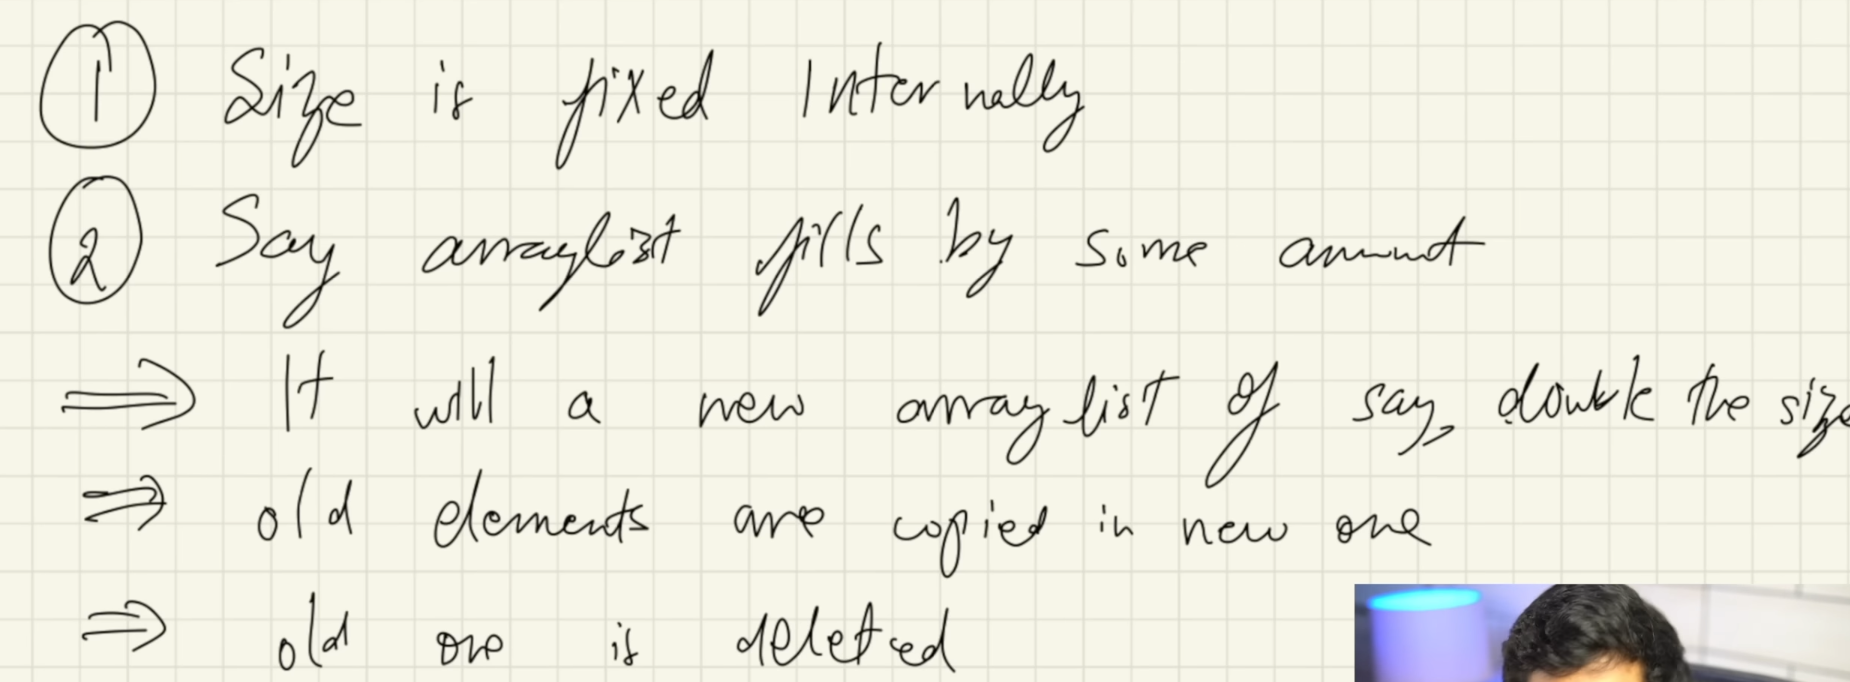 1 Size is fixed Internally
2 Say arraylist fills by some amount
⇒ It will a new arraylist of say, double the size
⇒ old elements are copied in new one
⇒ old one is deleted